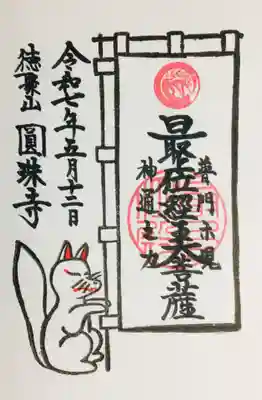 普門示現
最位經王大菩薩
神通之力
令和七年五月十二日
徳聚山
圓珠寺